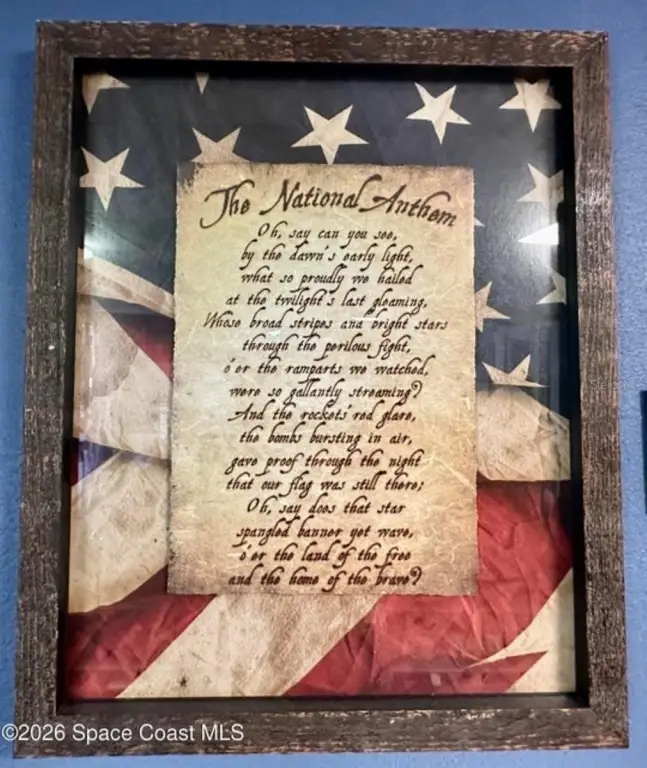 The National Anthem
Oh, say can you see,
by the dawn's early light,
what so proudly we hailed
at the twilight's last gleaming,
Whose broad stripes and bright stars
through the perilous fight,
o'er the ramparts we watched,
were so gallantly streaming?
And the rockets red glare,
the bombs bursting in air,
gave proof through the night
that our flag was still there;
Oh, say does that star
spangled banner yet wave,
o'er the land of the free
and the home of the brave?
©2026 Space Coast MLS